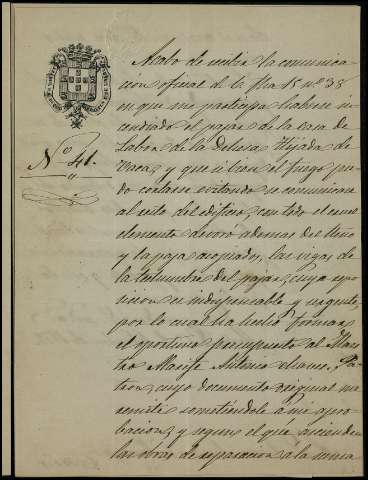 Acabo de recibir la comunica-
cion oficial de V. fha 15 nº 38
en que me participa haberse in-
cendiado el pajar de la Casa de
Labor de la Dehesa Tejada de
Vaca, y que si bien el fuego pu-
do cortarse evitando se comunicase
al resto del edificio, con todo el
elemento devoró ademas del
y la paja acopiados, las vigas de
la techumbre del pajar, cuya repo-
sicion es indispensable y urgente,
por lo cual ha hecho formar
el oportuno presupuesto al Maes-
tro Antonio
cuyo documento original me
remite sometiéndole á mi apro-
bacion, y segun el qué ascienden
las obras de reparacion á la suma
Nº 41.